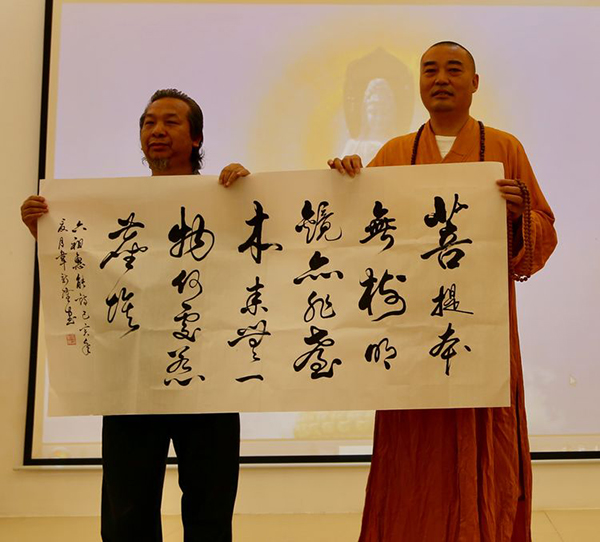 菩提本
無樹明
鏡亦非臺
本来無一
物何處惹
塵埃
六祖惠能詩己亥年
夏月韋